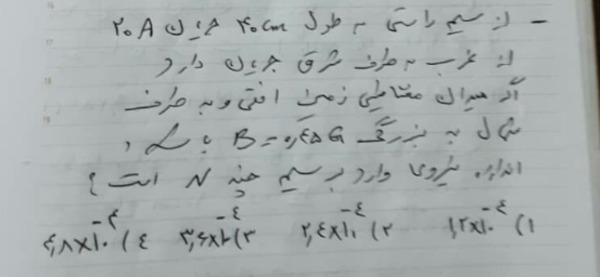 - از سیم راستی به طول ۴۰cm جریان ۲۰A
از غرب به طرف شرق جریان دارد
اگر میدان مغناطیسی زمین افقی و به طرف
شمال به بزرگی B=۰٫۴۵G باشد ،
اندازه نیروی وارد بر سیم چند N است ؟
۱) ۱٫۲×۱۰⁻⁴ ۲) ۲٫۴×۱۰⁻⁴ ۳) ۳٫۶×۱۰⁻⁴ ۴) ۴٫۸×۱۰⁻⁴